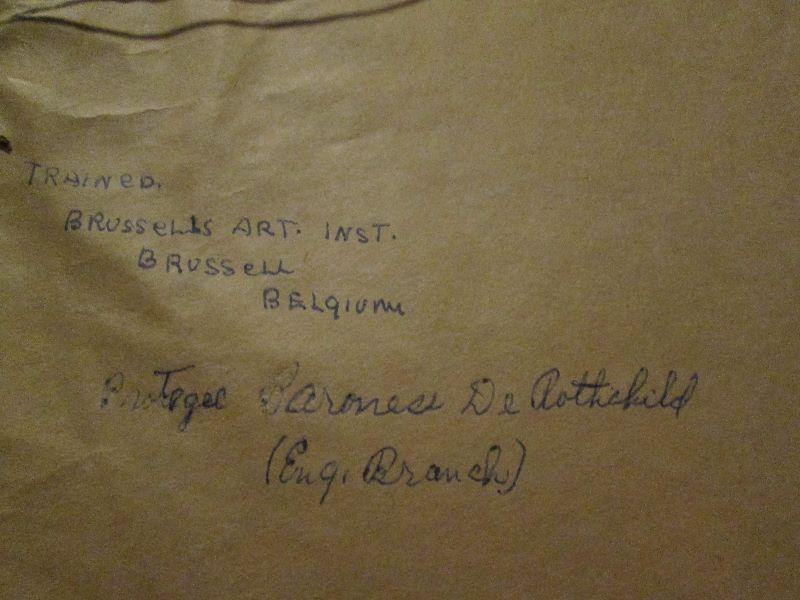 TRAINED.
BRUSSELLS ART. INST.
BRUSSELL
BELGIUM
Protegee Baroness De Rothchild
(Eng. Branch)